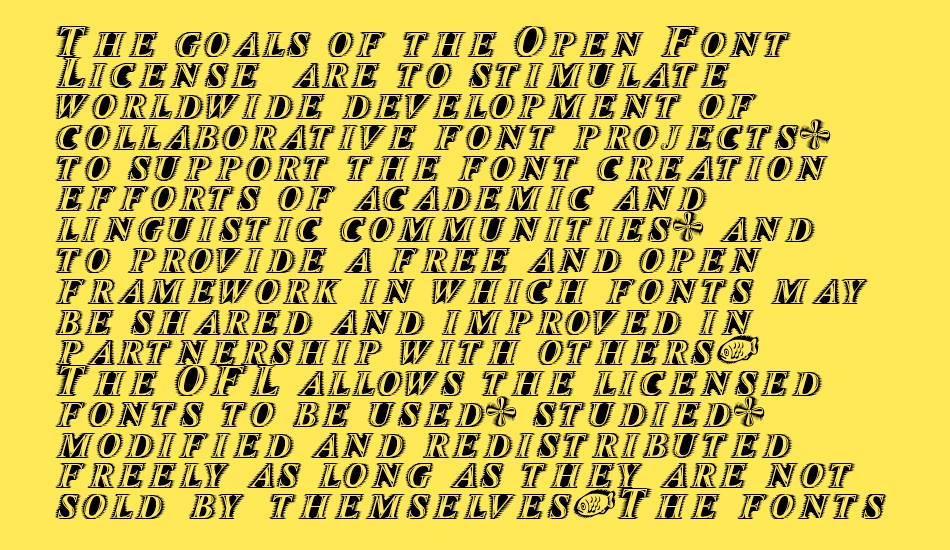 The goals of the Open Font
License are to stimulate
worldwide development of
collaborative font projects
to support the font creation
efforts of academic and
linguistic communities and
to provide a free and open
framework in which fonts may
be shared and improved in
partnership with others
The OFL allows the licensed
fonts to be used studied
modified and redistributed
freely as long as they are not
sold by themselves The fonts